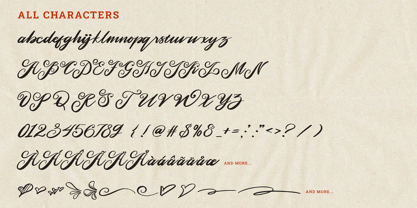 ALL CHARACTERS
abcdefghijklmnopqrstuvwxyz
ABCDEFGHIJKLMN
OPQRSTUVWXYZ
0123456789 { ! @ # $ % & _ + = / ? / )
ÀÁÂÃÄÅàáâãäåæ AND MORE...
AND MORE...